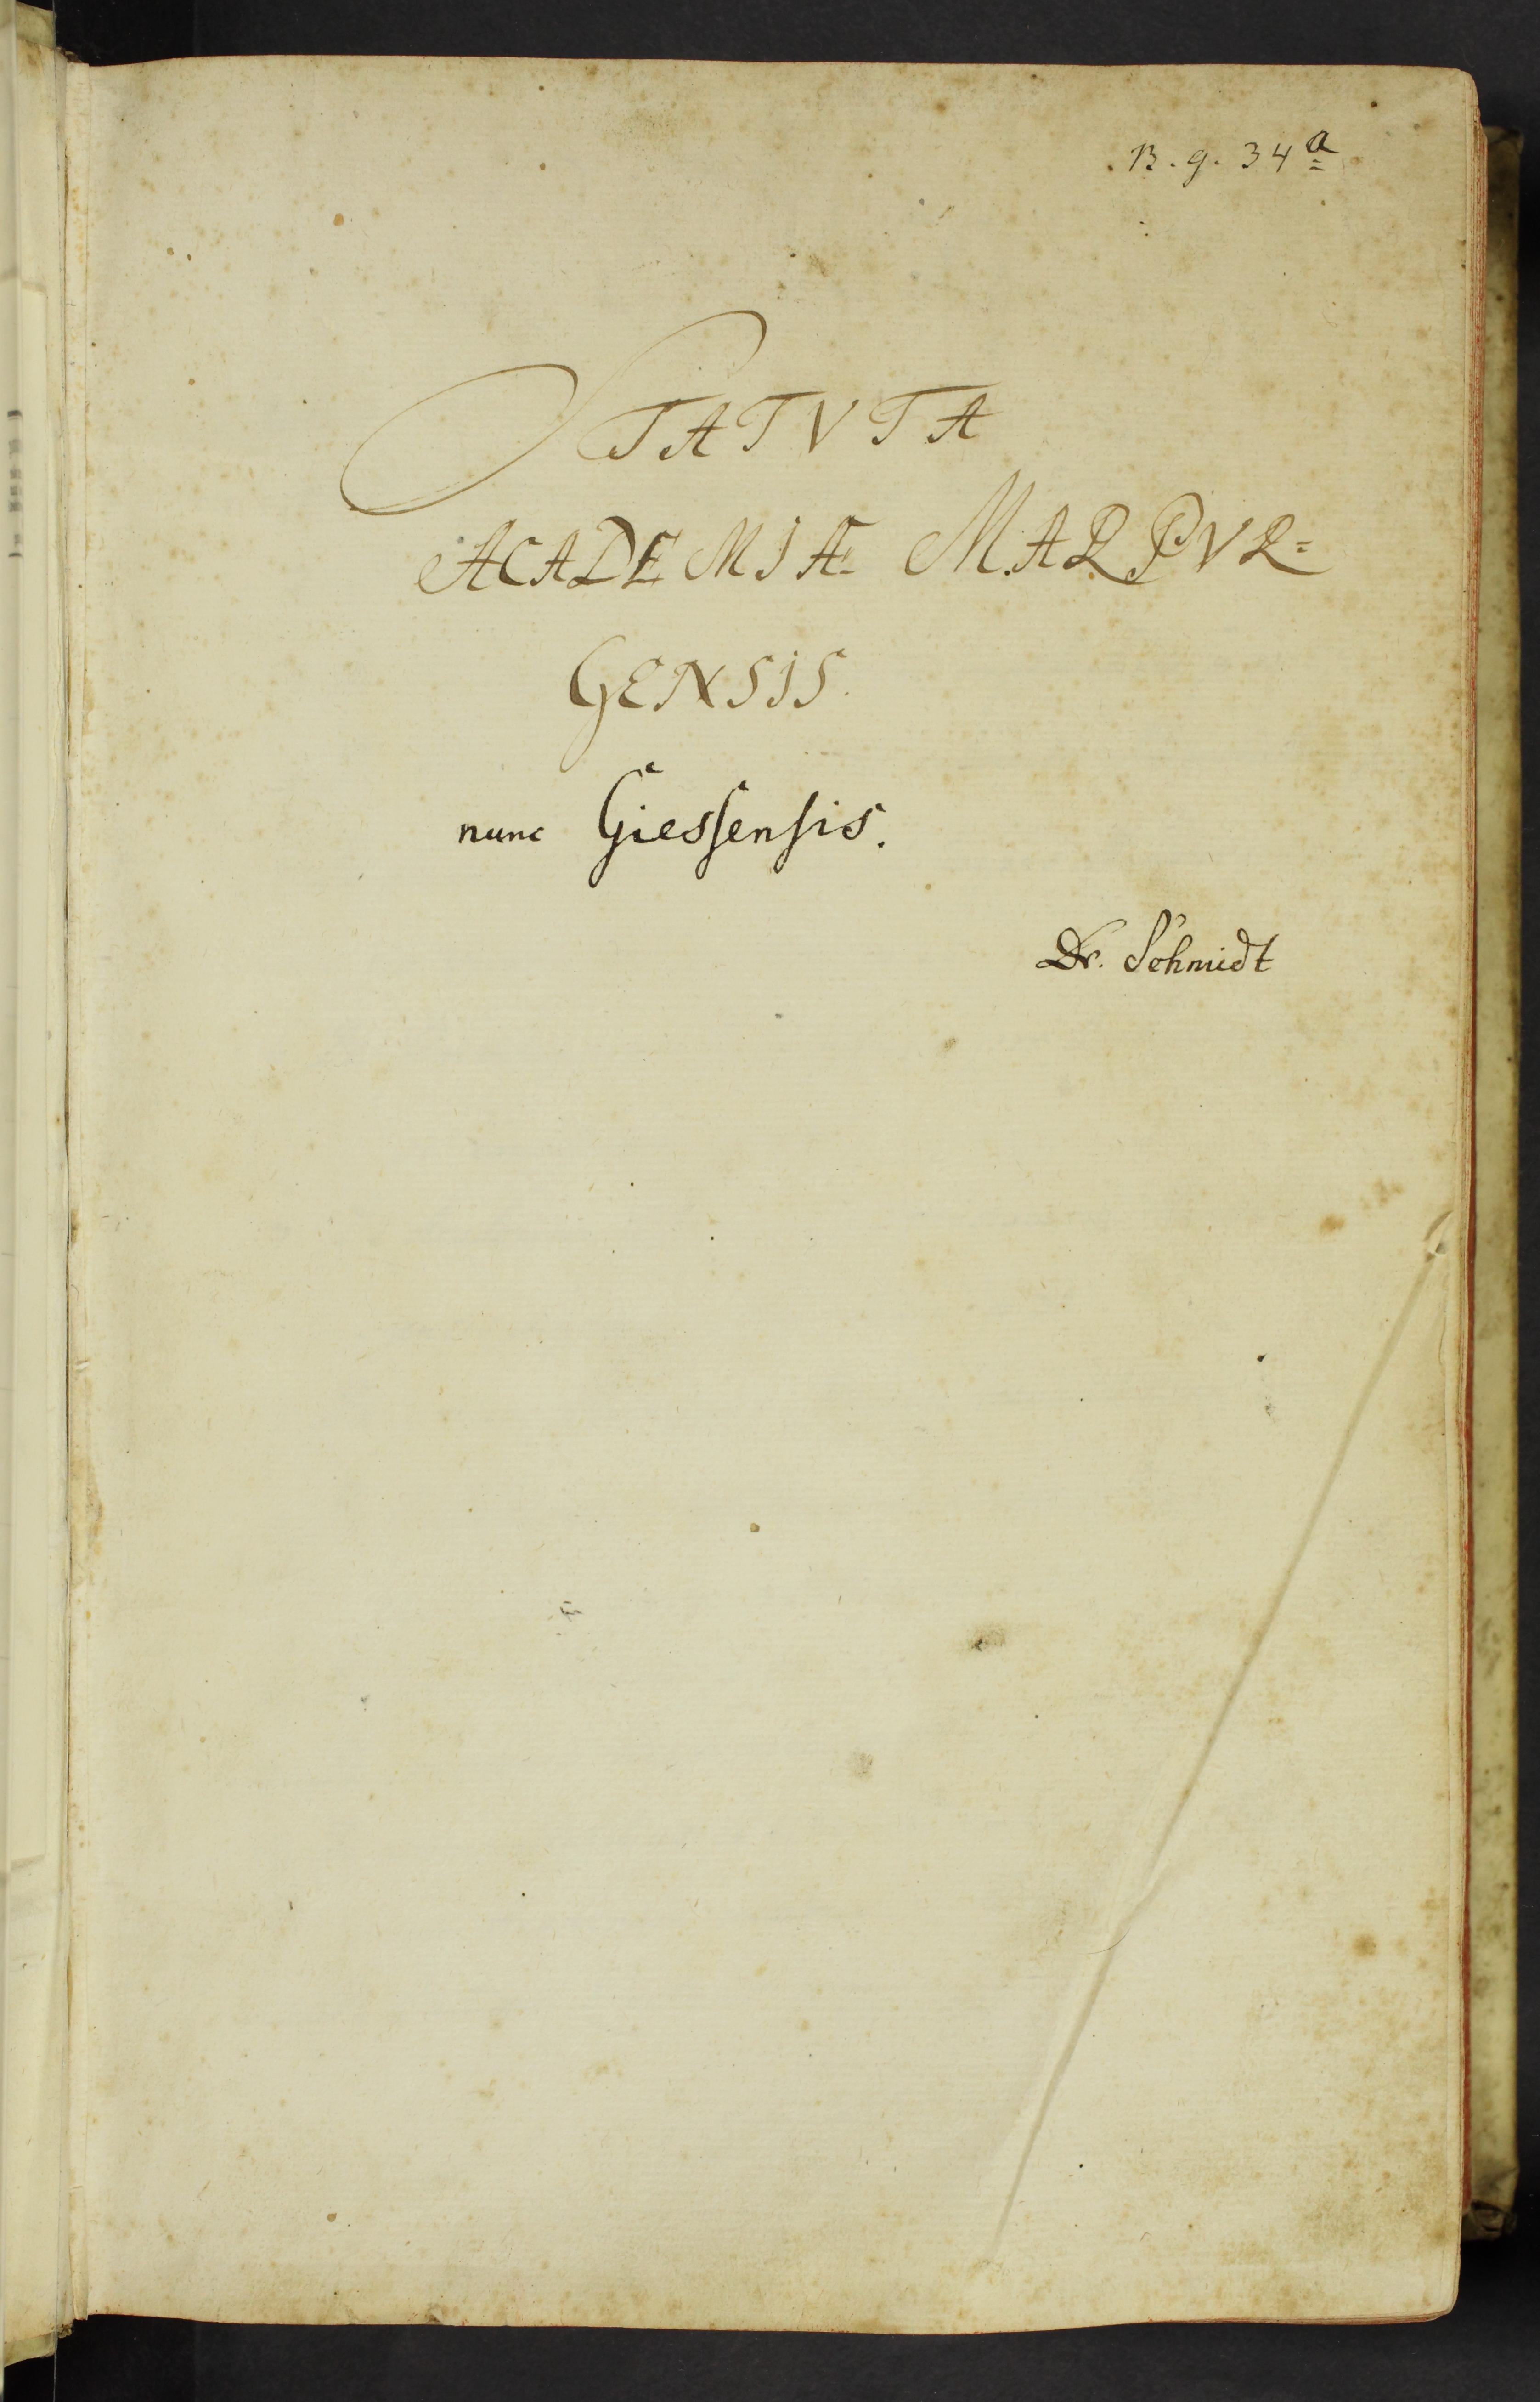 B. g. 34a
STATVTA
ACADEMIÆ MARPVR=
GENSIS.
nunc Giesſenſis.
Dr. Schmidt